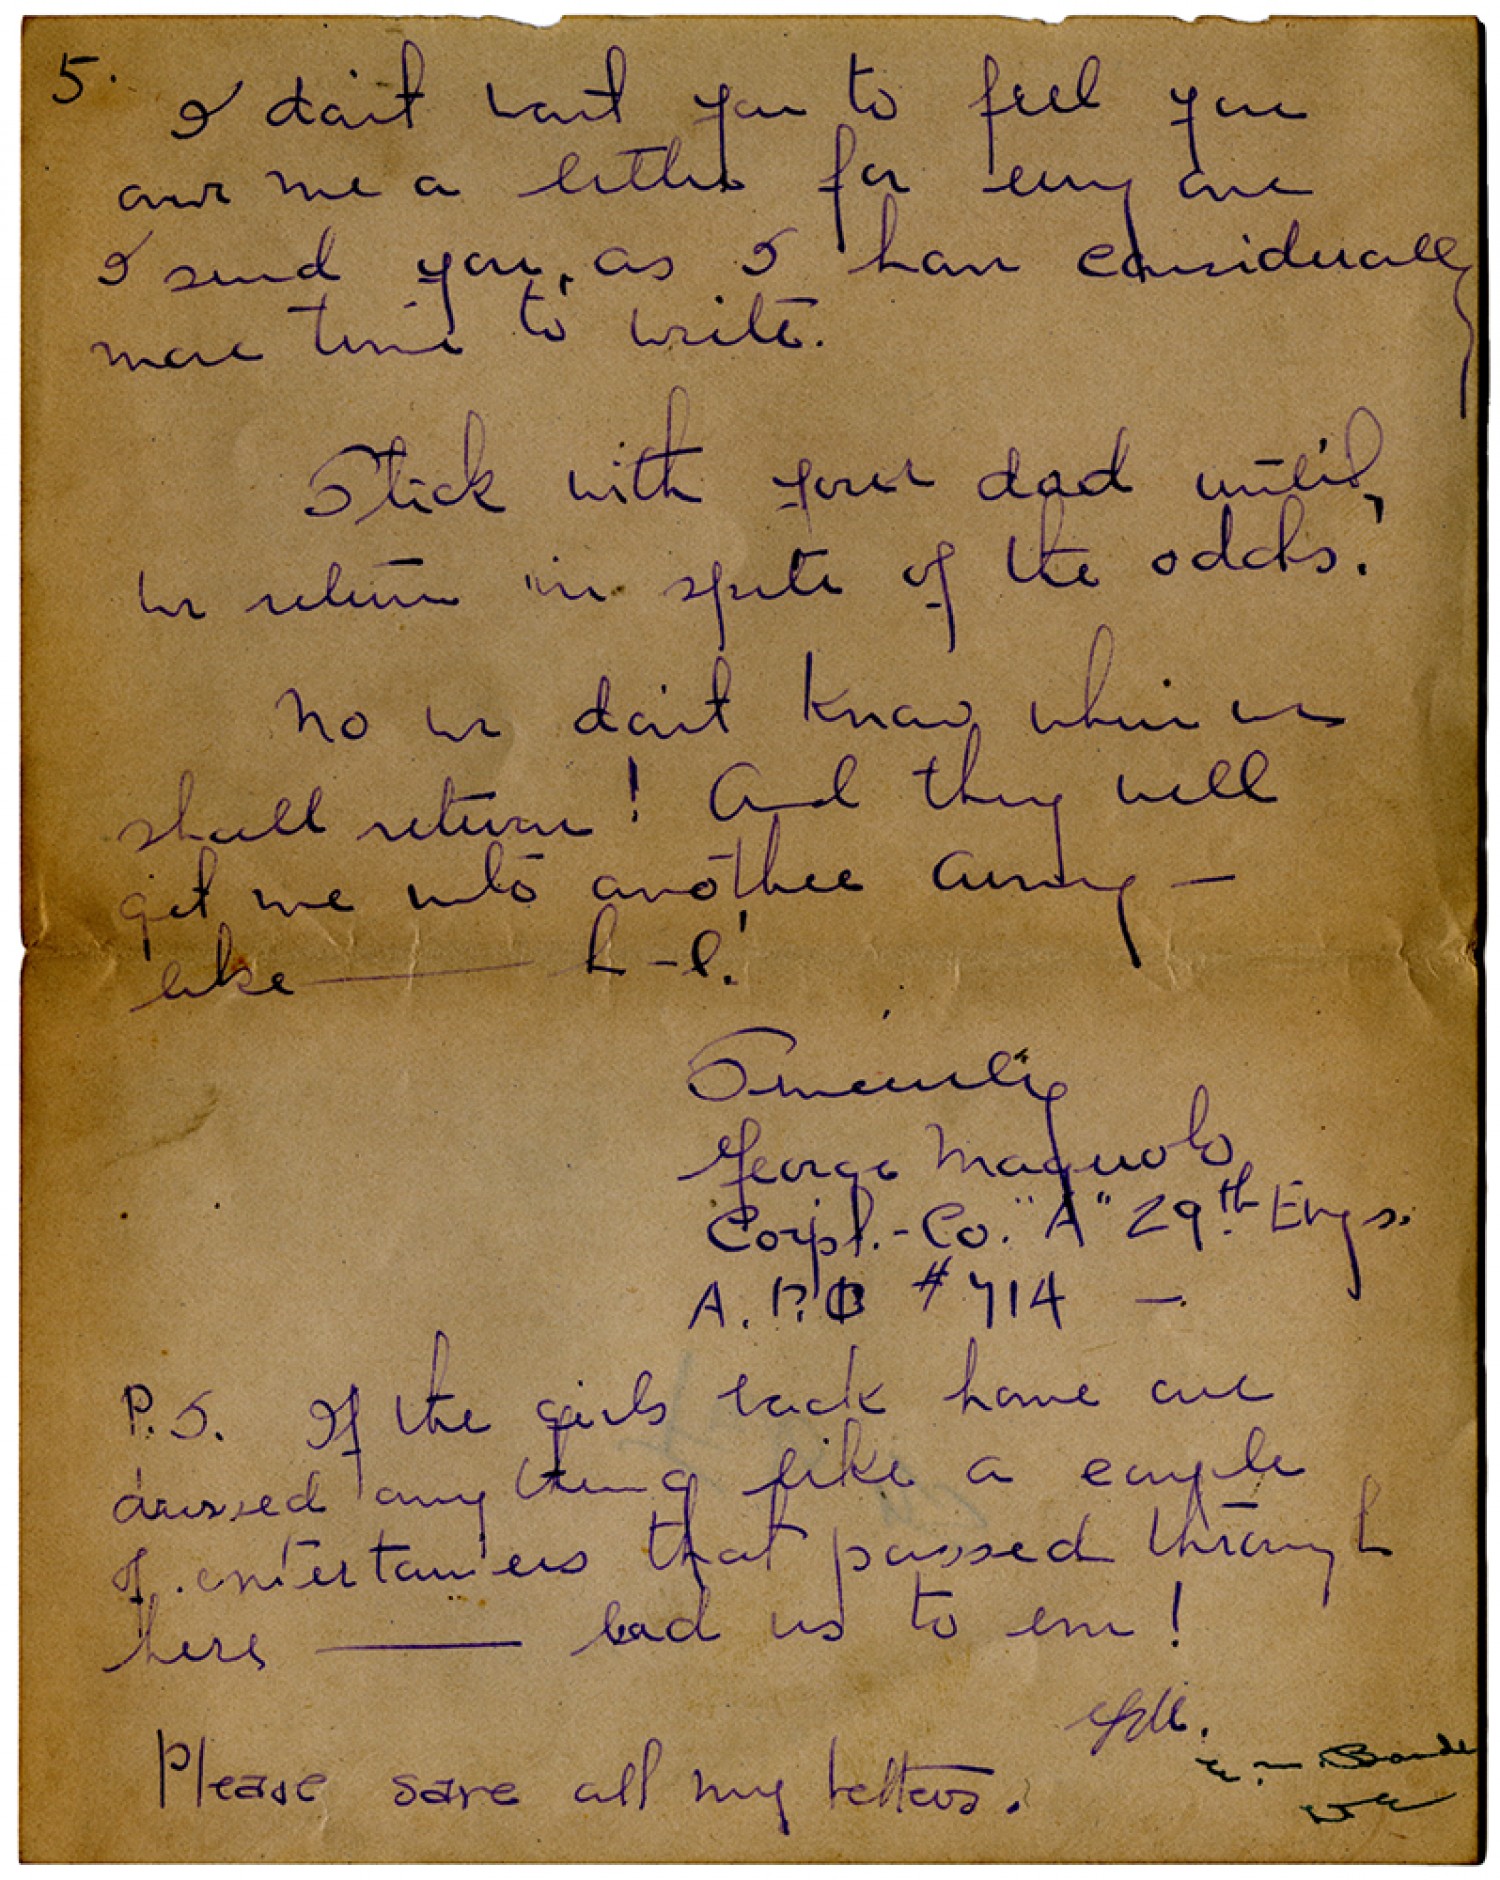 5.
I don't want you to feel you
owe me a letter for every one
I send you, as I have considerably
more time to write.
Stick with your dad until,
we return in spite of the odds!
No we don't know when we
shall return! And they will
get me into another army —
like —— h-l!
Sincerely
George
Corpl. - Co. "A" 29th Engs.
A.P.O #714 —
P.S. If the girls back home are
dressed anything like a couple
of entertainers that passed through
here —— lead us to em!
GM.
Please save all my letters.